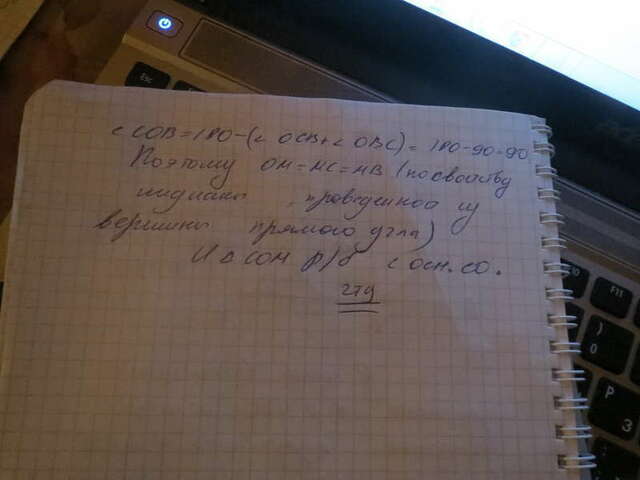 ∠COB=180-(∠OCB+∠OBC)=180-90=90.
Поэтому OM=MC=MB (по свойству
медианы, проведенной из
вершины прямого угла)
И ∆ COM р/б ∠OCM.
Esc
F10
F11
)
0
P
З